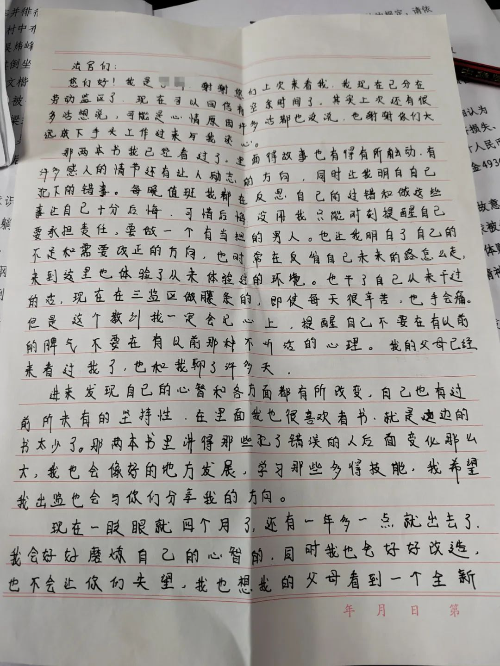 法官们：
您们好！我是 谢谢您们上次来看我，我现在已分在
劳动监区了，现在可以回信有空余时间了，其实上次还有很
多话想说，可能是心情原因许多话都也没说，也谢谢你们大
远放下手头工作过来与我谈心。
那两本书我已经看过了，里面得故事也有得有所触动，有
许多感人的情节还有让人励志的方向，同时让我明白自己
犯下的错事。每晚值班我都在反思，自己的过错和做这些
事让自己十分后悔，可惜后悔没用我只能时刻提醒自己
要承担责任，要做一个有当担的男人。也让我明白了自己的
不足和需要改正的方向，也时常在反省自己未来的路怎么走，
来到这里也体验了从来体验过的环境。也干了自己从来干过
的活，现在在三监区做腰条的，即使每天很辛苦，也手会痛。
但是这个教训我一定会记心上，提醒自己不要在有以前
的脾气不要在有以前那种不听话的心理。我的父母已经
来看过我了，也和我聊了许多天，
进来发现自己的心智和各方面都有所改变，自己也有过
前所未有的坚持性，在里面我也很喜欢看书，就是边边的
书太少了。那两本书里讲得那些犯了错误的人后面变化那么
大，我也会像好的地方发展，学习那些多得技能，我希望
我出监也会与你们分享我的方向。
现在一眨眼就四个月了，还有一年多一点就出去了，
我会好好磨炼自己的心智的，同时我也会好好改造，
也不会让你们失望，我也想我的父母看到一个全新
年 月 日 第